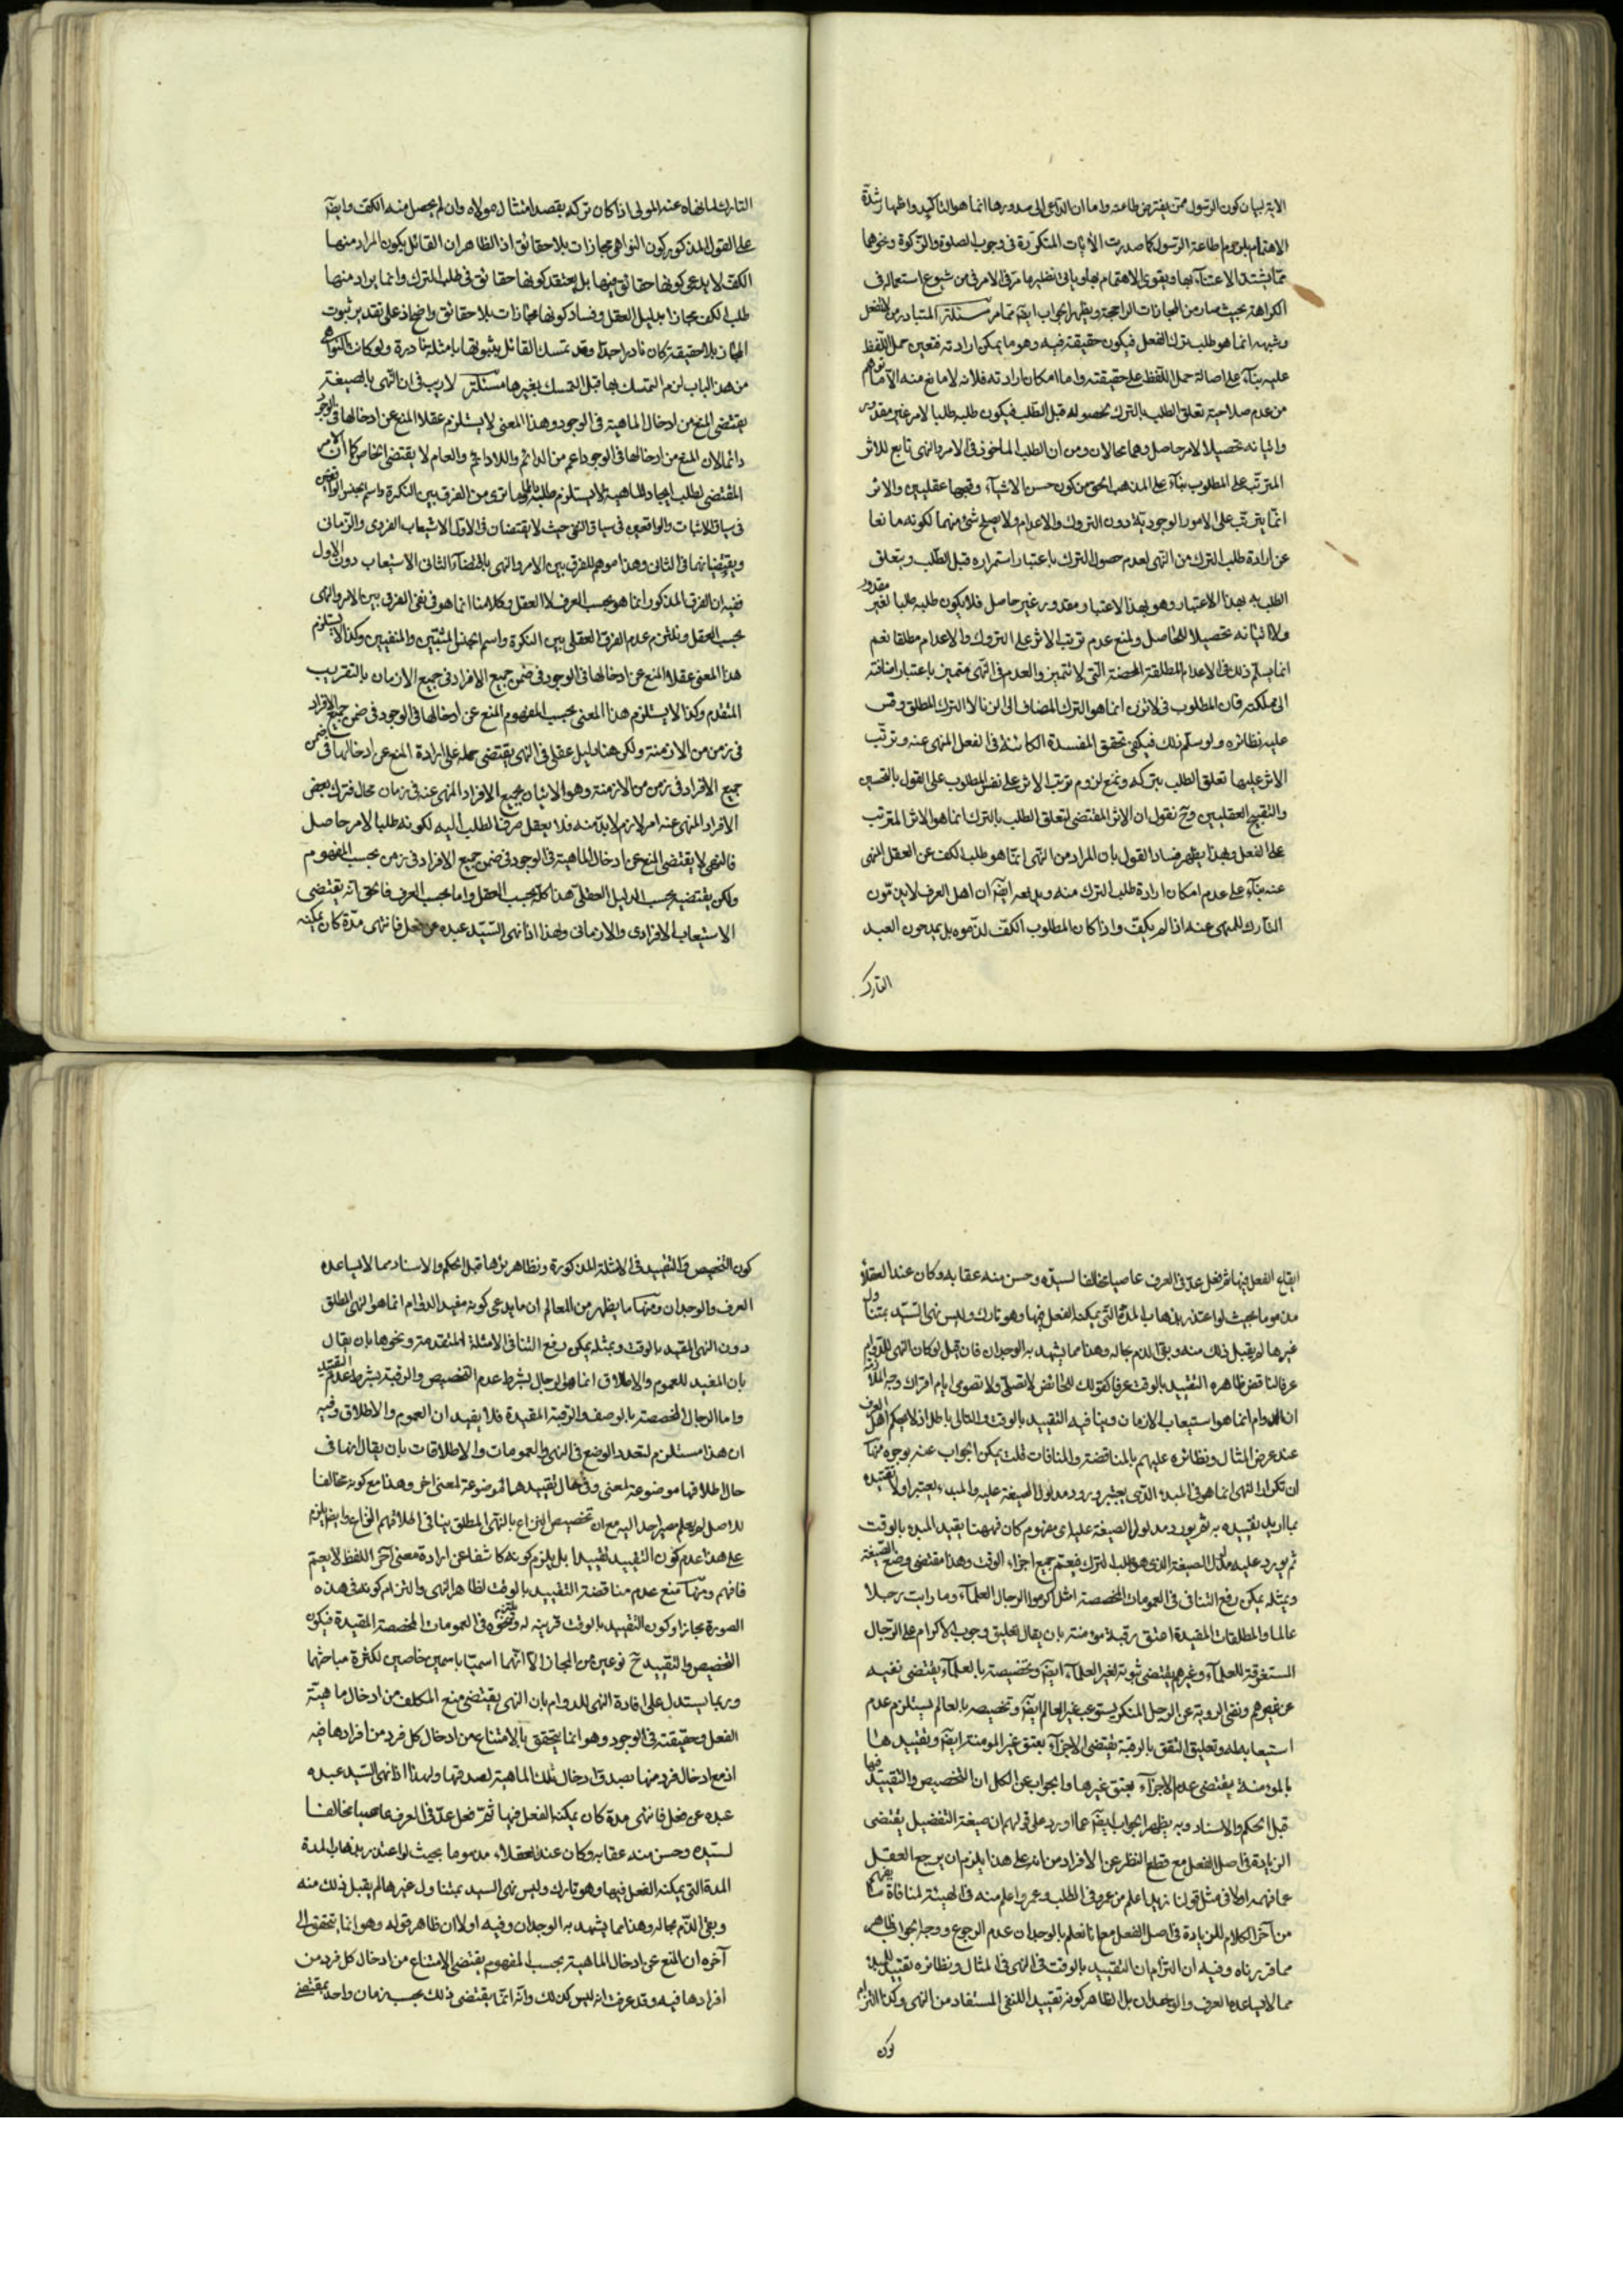 الاية لبيان كون الرسول ممن يفترض طاعته واما ان الداعى الى صدورها انما هو التاكيد واظهار شدة
الاهتمام بلزوم اطاعة الرسول كما صدرت الآيات المتكررة فى وجوب الصلوة والزكوة ونحوهما
مما يشتد الاعتناء بها ويقوى الاهتمام بها وياتى نظير ما مر فى الامر فى من شيوع استعماله فى
الكراهة بحيث صار من المجازات الراجحة ويظهر الجواب ايضا مما مر مسئلة المتبادر من لا تفعل
وشبهه انما هو طلب ترك الفعل فيكون حقيقة فيه وهو ما يمكن ارادته فتعين حمل اللفظ
عليه بناء على اصالة حمل اللفظ على حقيقته واما امكان ارادته فلانه لا مانع منه الا ما
من عدم صلاحية تعلق الطلب بالترك لحصوله قبل الطلب فيكون طلبه طلبا لامر غير مقدور
واتيانه تحصيلا لامر حاصل وهما محالان ومن ان الطلب الماخوذ فى الامر والنهى تابع للاثر
المترتب على المطلوب بناء على المذهب الحق من كون حسن الاشياء وقبحها عقليين والاثر
انما يترتب على الامور الوجودية دون التروك والاعدام ولا يصلح شئ منهما لكونه مانعا
عن ارادة طلب الترك من النهى لعدم حصول الترك باعتبار استمراره قبل الطلب ويتعلق
الطلب به بهذا الاعتبار وهو بهذا الاعتبار مقدور غير حاصل فلا يكون طلبه طلبا لغير مقدور
ولا اتيانه تحصيلا للحاصل ولمنع عدم ترتب الاثر على التروك والاعدام مطلقا نعم
انما يسلم ذلك فى الاعدام المطلقة المحضة التى لا تتميز والعدم فى النهى متميز باعتبار اضافته
الى ملكته فان المطلوب فى لا تزن انما هو الترك المضاف الى الزنا لا الترك المطلق وقس
عليه نظائره ولو سلم ذلك فيكفى تحقق المفسدة الكائنة فى الفعل المنهى عنه وترتب
الاثر عليها تعلق الطلب بتركه ونمنع لزوم ترتب الاثر على نفس المطلوب على القول بالتحسين
والتقبيح العقليين وح نقول ان الاثر المقتضى لتعلق الطلب بالترك انما هو الاثر المترتب
على الفعل وبهذا يظهر فساد القول بان المراد من النهى انما هو طلب الكف عن الفعل المنهى
عنه بناء على عدم امكان ارادة طلب الترك منه ايضا ان اهل العرف لا يذمون
التارك للمنهى عنه اذا لم يكف واذا كان المطلوب الكف لذموه بل يمدحون العبد
التارك
التارك لما نهاه عنه المولى اذا كان تركه بقصد امتثال مولاه وان لم يحصل منه الكف وايضا
على القول المذكور كون النواهى مجازات بلا حقائق اذ الظاهر ان القائل بكون المراد منها
الكف لا يدعى كونها حقائق فيها بل يعتقد كونها حقائق فى طلب الترك وانما يراد منها
طلب الكف مجازا بدليل العقل وفساد كونها مجازات بلا حقائق واضح اذ على تقدير ثبوت
المجاز بلا حقيقة كان نادرا جدا وقد تمسك القائل بثبوتها بامثلة نادرة ولو كانت النواهى
من هذا الباب لزم التمسك بها قبل التمسك بغيرها مسئلة لا ريب فى ان النهى بالصيغة
يقتضى المنع من ادخال الماهية فى الوجود وهذا المعنى لا يستلزم عقلا المنع عن ادخالها فى الوجود
دائما لان المنع من ادخالها فى الوجود اعم من الدائم واللادائم والعام لا يقتضى الخاص كما ان الامر
المقتضى لطلب ايجاد الماهية لا يستلزم ما ترى من الفرق بين النكرة واسم الجنس الواقعين
فى سياق الاثبات والواقعين فى سياق النفى حيث لا يقتضيان فى الاول الاستيعاب الفردى والزمانى
ويقتضيانهما فى الثانى وهذا موهم للفرق بين الامر والنهى باقتضاء الثانى الاستيعاب دون الاول
ففيه ان الفرق المذكور انما هو بحسب العرف لا العقل وكلامنا انما هو فى نفى الفرق بين الامر والنهى
بحسب العقل ونلتزم عدم الفرق العقلى بين النكرة واسم الجنس المثبتين والمنفيين وكذا لا يستلزم
هذا المعنى عقلا المنع عن ادخالها فى الوجود فى ضمن جميع الافراد فى جميع الازمان بالتقريب
المتقدم وكذا لا يستلزم هذا المعنى بحسب المفهوم المنع عن ادخالها فى الوجود فى ضمن جميع الافراد
فى زمن من الازمنة ولكن هنا دليل عقلى فى النهى يقتضى حمله على ارادة المنع عن ادخالها فى ضمن
جميع الافراد فى زمن من الازمنة وهو الاتيان بجميع الافراد المنهى عنه فى زمان محال فترك بعض
الافراد المنهى عنه امر لازم لابد منه فلا يعقل صرف الطلب اليه لكونه طلبا لامر حاصل
فالنهى لا يقتضى المنع عن ادخال الماهية فى الوجود فى ضمن جميع الافراد فى زمن بحسب المفهوم
ولكن يقتضيه بحسب الدليل العقلى هذا كله بحسب العقل واما بحسب العرف فالحق انه يقتضى
الاستيعاب الافرادى والازمانى ولهذا اذا نهى السيد عبده عن فعل فانتهى مدة كان يمكنه
ايقاع الفعل فيها ثم فعل عد فى العرف عاصيا مخالفا لسيده وحسن منه عقابه وكان عند العقلاء
مذموما بحيث لو اعتذر بذهاب المدة التى يمكنه الفعل فيها وهو تارك وليس نهى السيد بمتناول
غيرها لم يقبل ذلك منه وبقى الذم بحاله وهذا مما يشهد به الوجدان فان قيل لو كان النهى للدوام
عرفا لناقض ظاهره التقييد بالوقت عرفا كقولك للحائض لا تصلى ولا تصومى ايام اقرائك وجه الملازمة
ان الدوام انما هو استيعاب الازمان وينافيه التقييد بالوقت والتالى باطل اذ لا يحكم اهل العرف
عند عرض المثال ونظائره عليهم بالمناقضة والمنافات قلت يمكن الجواب عنه بوجوه منها
ان تكرار النهى انما هو فى المبدء الذى يعتبر ورود مدلول الصيغة عليه والمبدء يعتبر اولا تقييده
بما اريد تقييده به ثم يورد مدلول الصيغة عليه اى مفهوم كان فههنا يقيد المبدء بالوقت
ثم يورد عليه مدلول الصيغة الذى هو طلب الترك فيعم جميع اجزاء الوقت وهذا مقتضى وضع الصيغة
وبمثله يمكن رفع التنافى فى العمومات المخصصة مثل اكرموا الرجال العلماء وما رايت رجلا
عالما والمطلقات المقيدة اعتق رقبة مؤمنة بان يقال تعليق وجوب الاكرام على الرجال
المستغرقة للعلماء وغيرهم يقتضى ثبوته لغير العلماء ايضا وتخصيصه بالعلماء يقتضى نفيه
عن غيرهم ونفى الروية عن الرجل المنكر يستوعب غير العالم ايضا وتخصيصه بالعالم يستلزم عدم
استيعابه له وتعليق العتق بالرقبة يقتضى الاجزاء بعتق غير المومنة ايضا وتقييدها
بالمومنة يقتضى عدم الاجزاء بعتق غيرها والجواب عن الكل ان التخصيص والتقييد فيها
قبل الحكم والاسناد وبه يظهر الجواب ايضا عما اورد على قولهم ان صيغة التفضيل يقتضى
الزيادة فى اصل الفعل مع قطع النظر عن الافراد من انه على هذا يلزم ان يرجع العقل
عما فهمه اولا فى مثل قولنا زيد اعلم من عمرو فى الطلب وعمرو اعلم منه فى الهيئة لمنافاة ما يفهم
من آخر الكلام للزيادة فى اصل الفعل مع انا نعلم بالوجدان عدم الرجوع ووجه الجواب ظاهر
مما قررناه وفيه ان التزام ان التقييد بالوقت فى النهى فى المثال ونظائره تقييد للمبدء
مما لا يساعده العرف والوجدان بل الظاهر كونه تقييد للنفى المستفاد من النهى وكذا التزام
كون
كون التخصيص والتقييد فى الامثلة المذكورة ونظاهرها قبل الحكم والاسناد مما لا يساعده
العرف والوجدان ومنها ما يظهر من المعالم ان ما يدعى كونه مفيد الدوام انما هو النهى المطلق
دون النهى المقيد بالوقت وبمثله يمكن دفع التنافى الامثلة المتقدمة ونحوها بان يقال
بان المفيد للعموم والاطلاق انما هو الرجال بشرط عدم التخصيص والرقبة بشرط عدم التقييد
واما الرجال المخصصة بالوصف والرقبة المقيدة فلا يفيدان العموم والاطلاق وفيه
ان هذا مستلزم لتعدد الوضع فى النهى والعمومات والاطلاقات بان يقال انها فى
حال اطلاقها موضوعة لمعنى وفى حال تقييدها موضوعة لمعنى اخر وهذا مع كونه مخالفا
للاصل لم يعلم مصير احد اليه مع ان تخصيص النزاع بالنهى المطلق ينافى اطلاقهم النزاع وايضا يلزم
على هذا عدم كون التقييد تقييدا بل يلزم كونه كاشفا عن ارادة معنى آخر اللفظ لا يعمه
فافهم ومنها منع عدم مناقضة التقييد بالوقت لظاهر النهى والتزام كونه فى هذه
الصورة مجازا وكون التقييد بالوقت قرينة له ونحوه فى العمومات المخصصة المقيدة فيكون
التخصيص والتقييد ح نوعين من المجاز الا انهما اسميا باسمين خاصين لكثرة مباحثهما
وربما يستدل على افادة النهى للدوام بان النهى يقتضى منع المكلف من ادخال ماهية
الفعل وحقيقته فى الوجود وهو انما يتحقق بالامتناع من ادخال كل فرد من افرادها فيه
اذ مع ادخال فرد منها يصدق ادخال تلك الماهية لصدقها ولهذا اذا نهى السيد عبده
عبده عن فعل فانتهى مدة كان يمكنه الفعل فيها ثم فعل عد فى العرف عاصيا مخالفا
لسيده وحسن منه عقابه وكان عند العقلاء مذموما بحيث لو اعتذر بذهاب المدة
المدة التى يمكنه الفعل فيها وهو تارك وليس نهى السيد بمتناول غيرها لم يقبل ذلك منه
وبقى الذم بحاله وهذا مما يشهد به الوجدان وفيه اولا ان ظاهر قوله وهو انما يتحقق الى
آخره ان المنع عن ادخال الماهية بحسب المفهوم يقتضى الامتناع من ادخال كل فرد من
افرادها فيه وقد عرفت انه ليس كذلك وانه انما يقتضى ذلك بحسب زمان واحد بمقتضى